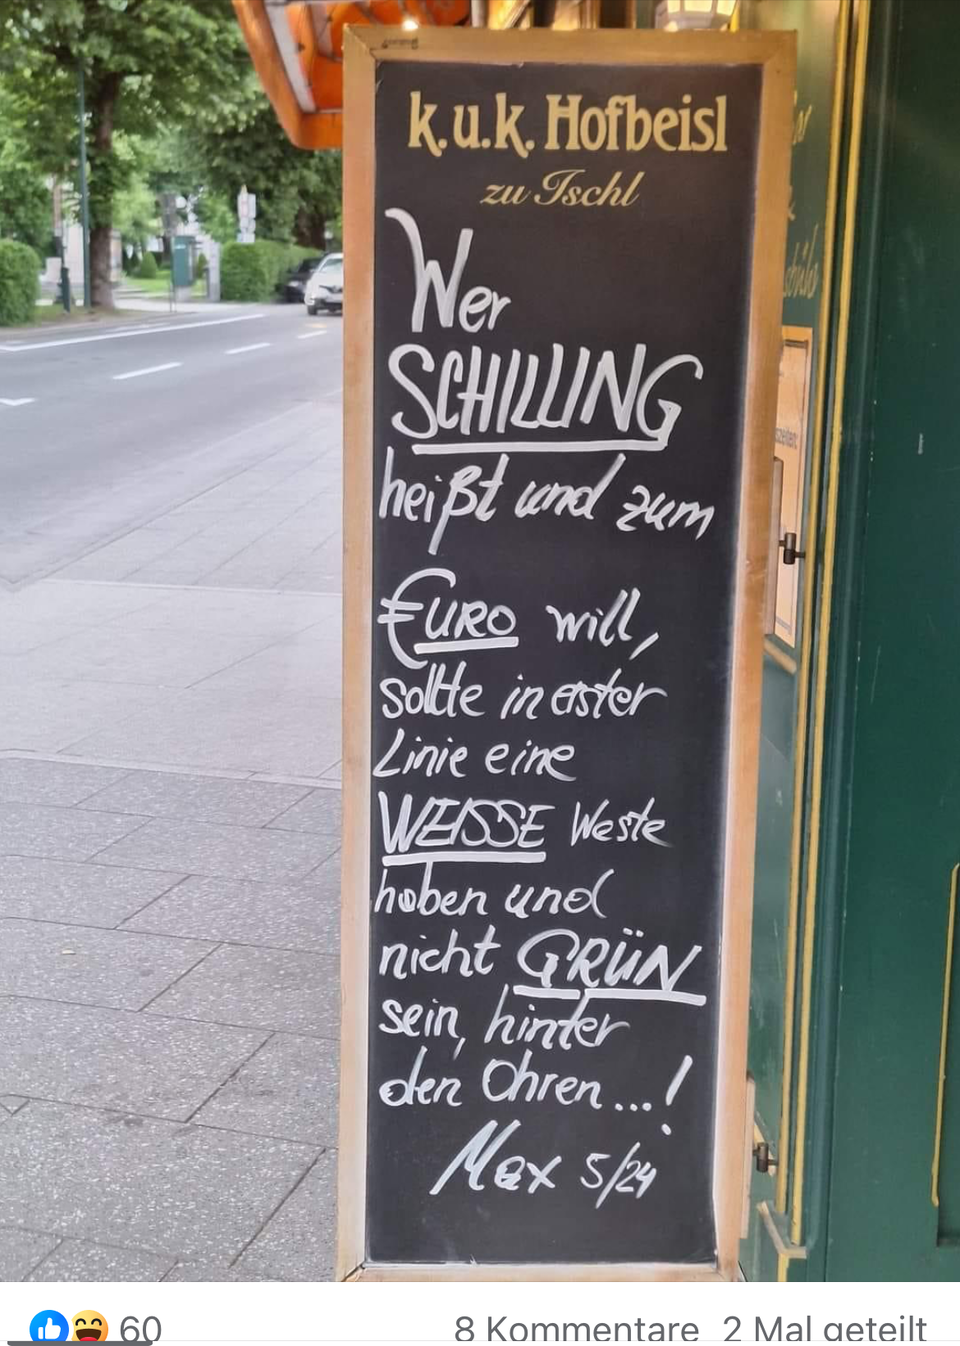 k.u.k. Hofbeisl
zu Ischl
Wer
SCHILLING
heißt und zum
€URO will,
sollte in erster
Linie eine
WEISSE Weste
haben und
nicht GRÜN
sein, hinter
den Ohren...!
Max 5/24
60
8 Kommentare 2 Mal geteilt